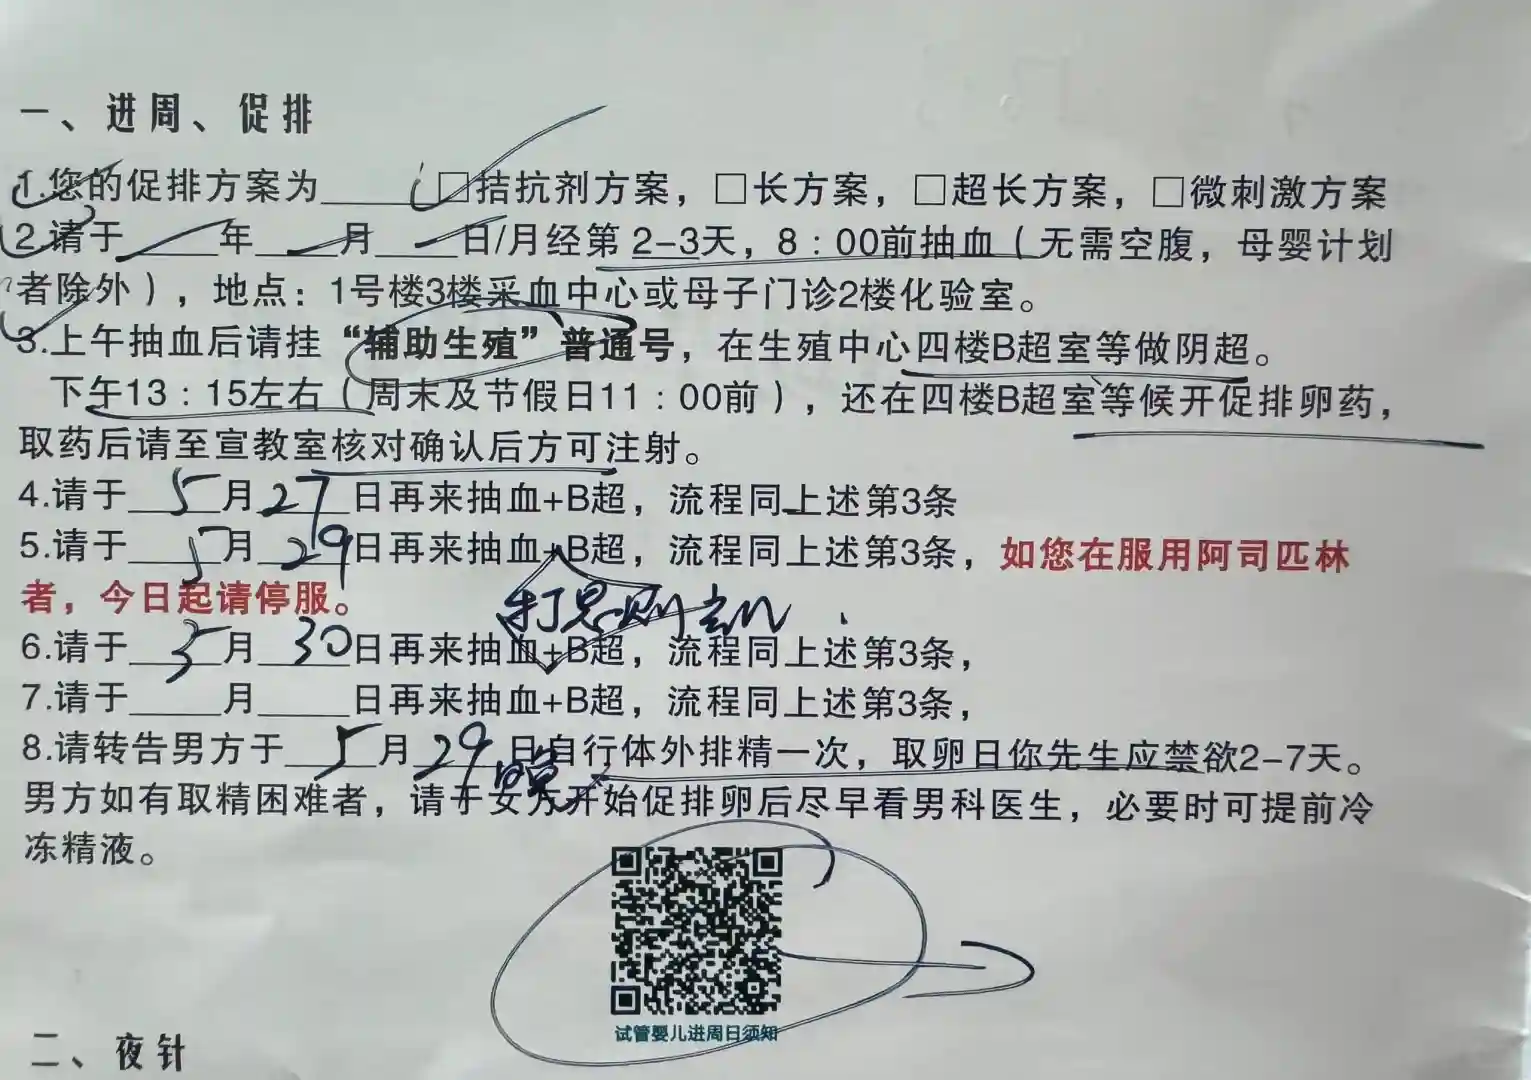 一、进周、促排
1.您的促排方案为______□拮抗剂方案，□长方案，□超长方案，□微刺激方案
2.请于_____年____月____日/月经第 2-3天，8：00前抽血（无需空腹，母婴计划
者除外），地点：1号楼3楼采血中心或母子门诊2楼化验室。
3.上午抽血后请挂“辅助生殖”普通号，在生殖中心四楼B超室等做阴超。
下午13：15左右（周末及节假日11：00前），还在四楼B超室等候开促排卵药，
取药后请至宣教室核对确认后方可注射。
4.请于 5 月 27 日再来抽血+B超，流程同上述第3条
5.请于 5 月 29 日再来抽血+B超，流程同上述第3条，如您在服用阿司匹林
者，今日起请停服。
6.请于 5 月 30 日再来抽血+B超，流程同上述第3条，
7.请于_____月_____日再来抽血+B超，流程同上述第3条，
8.请转告男方于 5 月 29 日自行体外排精一次，取卵日你先生应禁欲2-7天。
男方如有取精困难者，请于女方开始促排卵后尽早看男科医生，必要时可提前冷
冻精液。
试管婴儿进周日须知
二、夜针